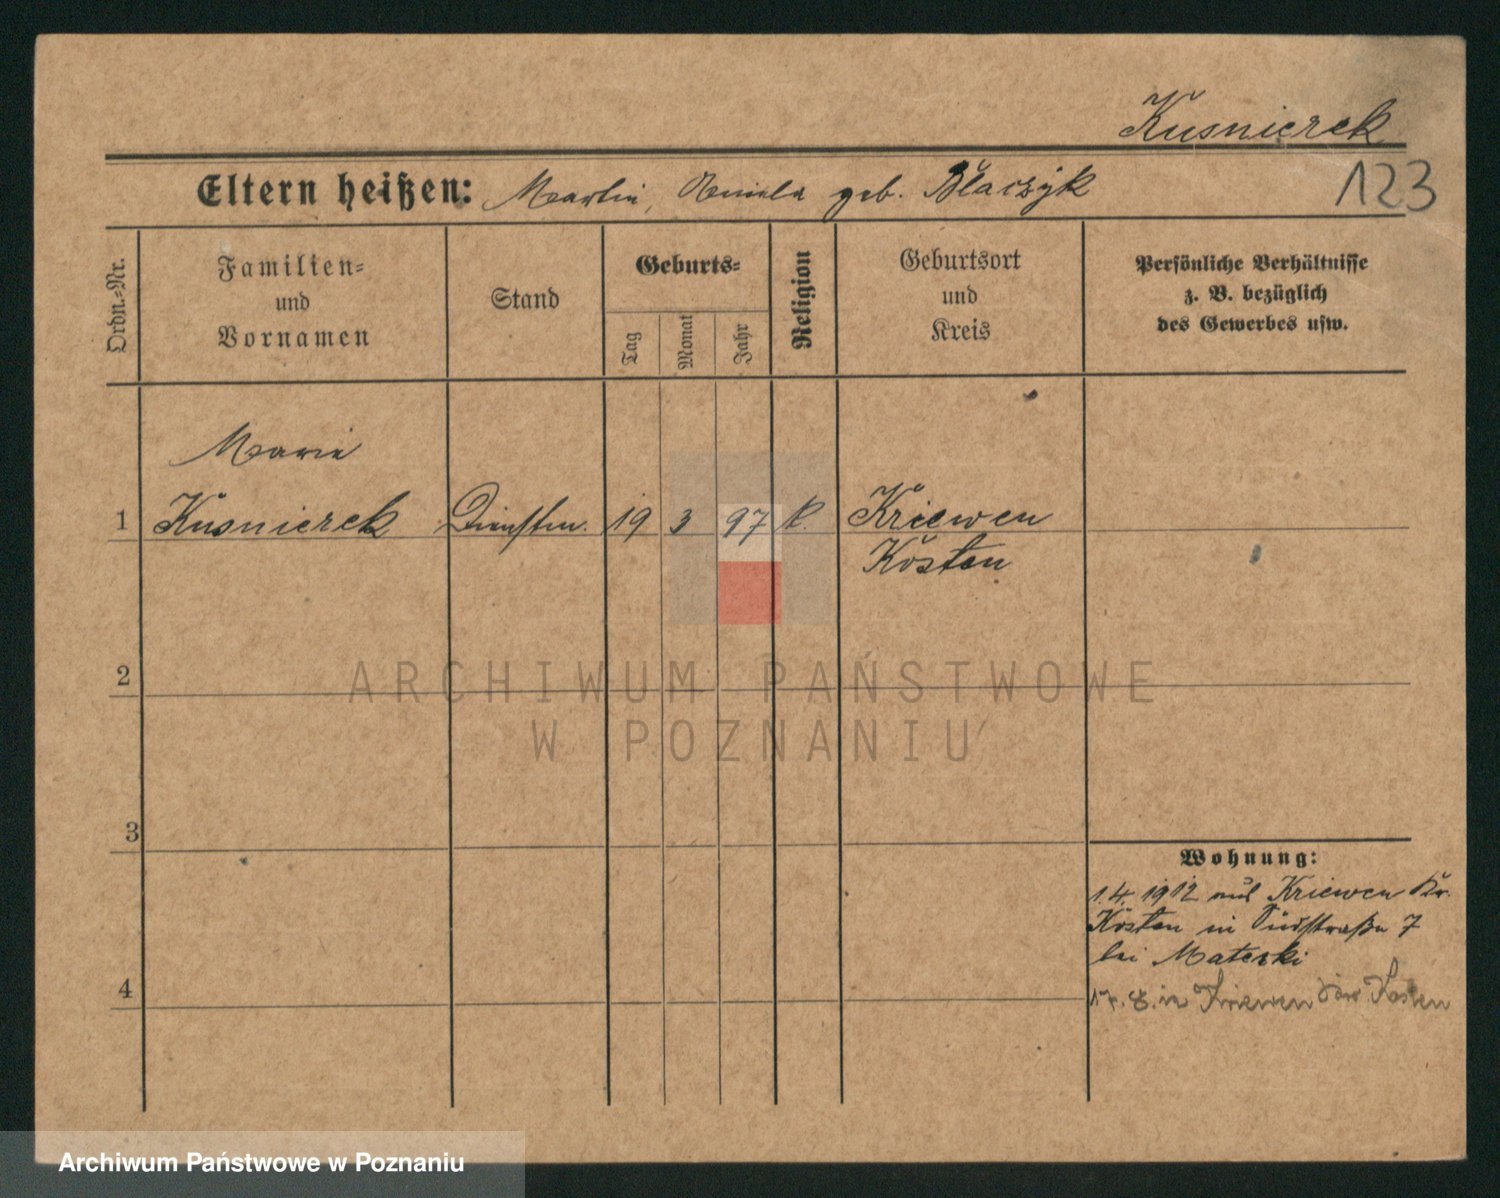 Kusnierek
123
Eltern heißen: Martin, geb. Błaczyk
Ordn.-Nr.
Familien-
und
Vornamen
Stand
Geburts-
Tag
Monat
Jahr
Religion
Geburtsort
und
Kreis
Persönliche Verhältnisse
z. B. bezüglich
des Gewerbes usw.
Marie
1 Kusnierek Dienstm. 19 3 97 k. Kriewen
Kosten
2
3
4
Wohnung:
1.4. 1912 aus Kriewen Kr.
Kosten in Südstraße 7
bei Mateski
17. 8. in Kriewen Kosten
ARCHIWUM PAŃSTWOWE
W POZNANIU
Archiwum Państwowe w Poznaniu